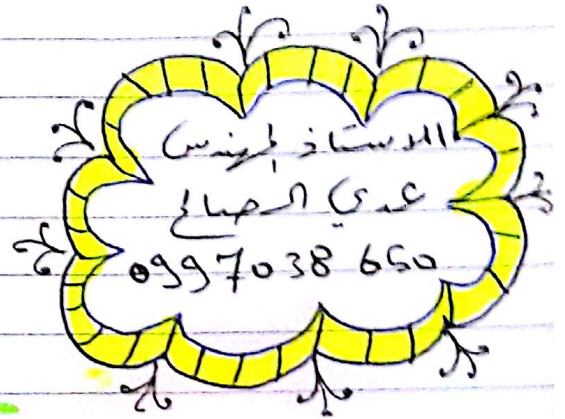 الاستاذ المهندس
عدي الصباغ
0997038 650